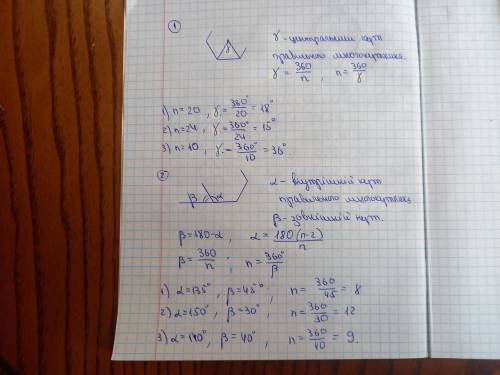 1
γ
γ - центральний кут
правильного многокутника.
γ = 360/n , n = 360/γ
1) n = 20 , γ = 360°/20 = 18°
2) n = 24 , γ = 360°/24 = 15°
3) n = 10 , γ - 360°/10 = 36°.
2
β α
α - внутрішній кут
правильного многокутника
β - зовнішній кут.
β = 180-α , α = 180(n-2)/n
β = 360/n ; n = 360°/β
1) α = 135° , β = 45° ; n = 360/45 = 8
2) α = 150° , β = 30° ; n = 360/30 = 12
3) α = 140° , β = 40° , n = 360/40 = 9.